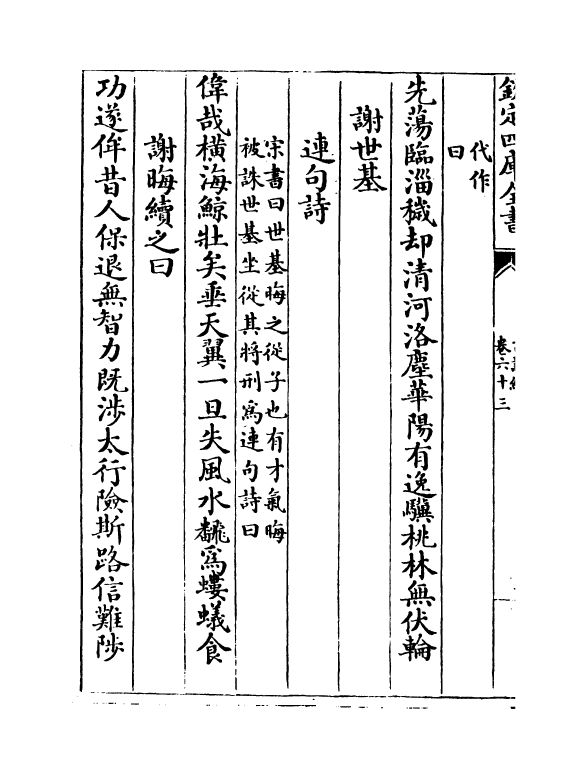 欽定四庫全書
卷六十三
代作
曰
先蕩臨淄穢却清河洛塵華陽有逸驥桃林無伏輪
謝世基
連句詩
宋書曰世基晦之從子也有才氣晦
被誅世基坐從其將刑爲連句詩曰
偉哉橫海鯨壯矣垂天翼一旦失風水飜爲螻蟻食
謝晦續之曰
功遂侔昔人保退無智力既涉太行險斯路信難陟